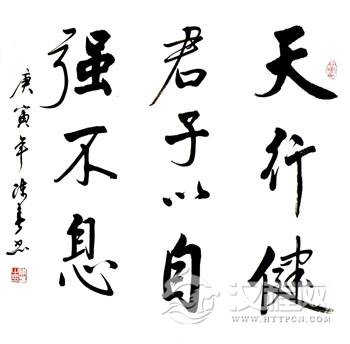 天行健
君子以自
强不息
庚寅年
汉程网
WWW.HTTPCN.COM